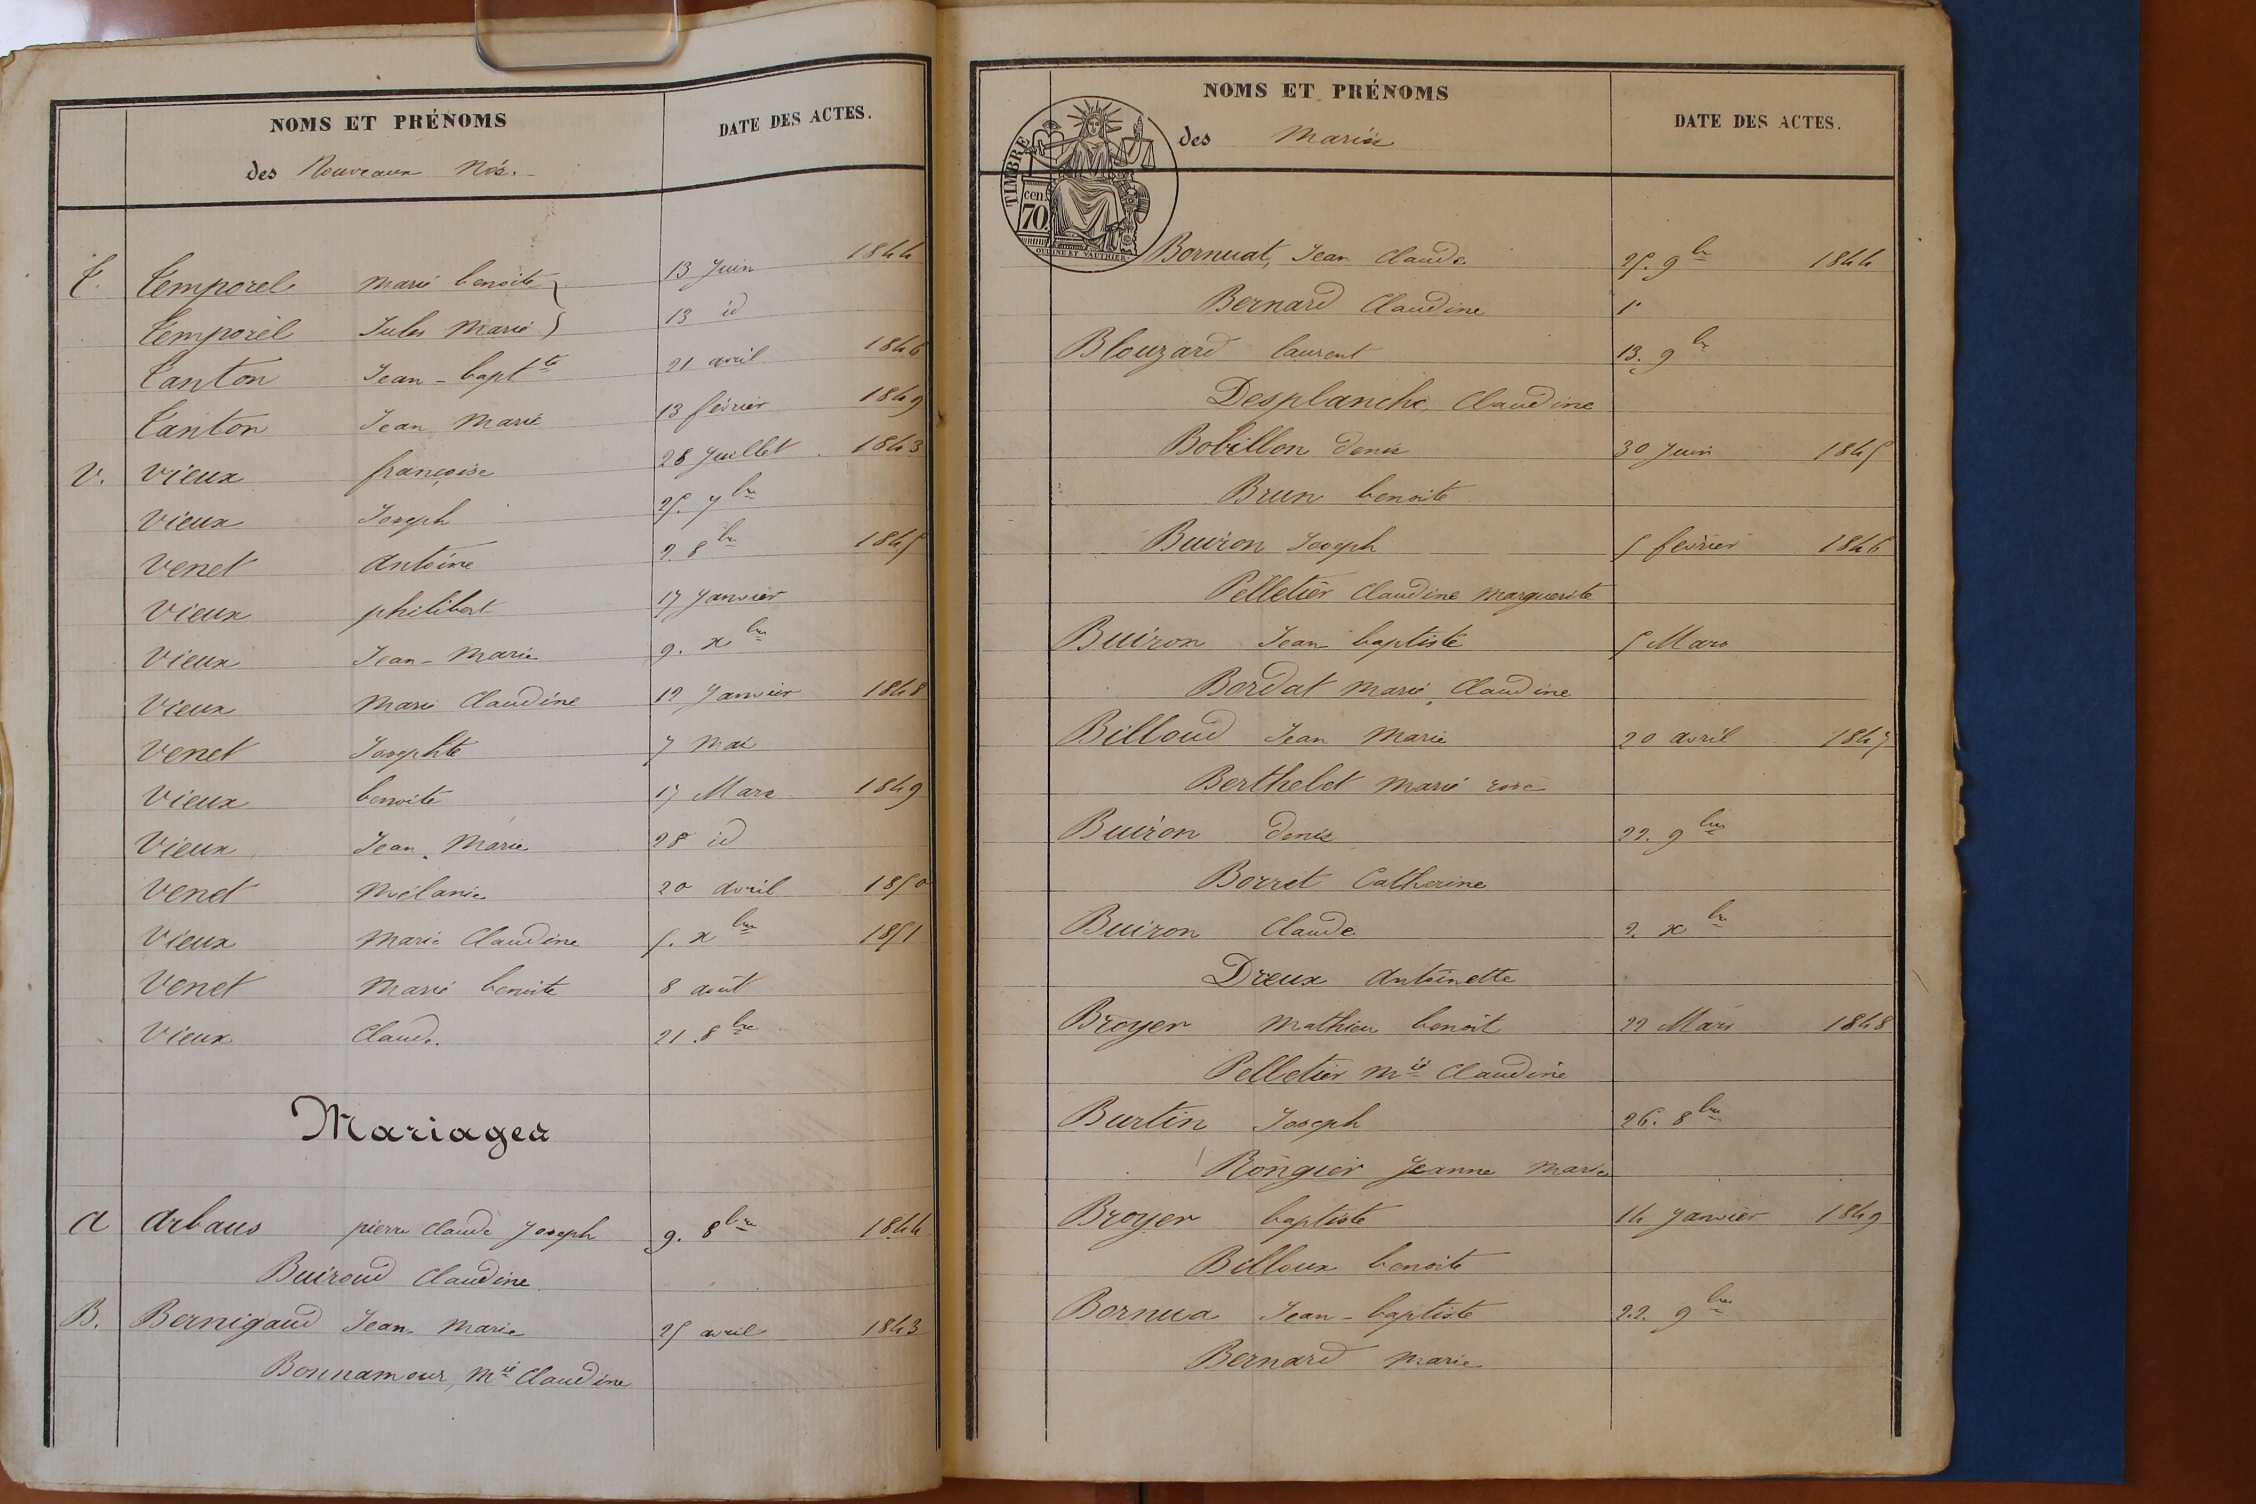 NOMS ET PRÉNOMS
DATE DES ACTES.
des Nouveaux Nés.
T. Temporel Marie benoite 13 Juin 1844
Temporel Jules Marie 13 id
Tanton Jean-bapt^te 21 avril 1846
Tanton Jean Marie 13 février 1849
V. Vieux françoise 28 Juillet 1843
Vieux Joseph 25. 7^bre
Venet Antoine 2. 8^bre 1845
Vieux philibert 17 Janvier
Vieux Jean-Marie 9. x^bre
Vieux Marie Claudine 12 Janvier 1848
Venet Josephte 7 Mai
Vieux benoite 17 Mars 1849
Vieux Jean Marie 28 id
Venet Mélanie 20 avril 1850
Vieux Marie Claudine 5. x^bre 1851
Venet Marie benoite 8 août
Vieux Claude 21. 8^bre
Mariages
A Arbaus pierre Claude Joseph 9. 8^bre 1844
Buiroud Claudine
B. Bernigaud Jean Marie 25 avril 1843
Bonnamour, M^ie Claudine
NOMS ET PRÉNOMS
DATE DES ACTES.
TIMBRE
70 cen.
OUDINÉ ET VAUTHIER
des Mariés
Bornuat, Jean Claude 25. 9^bre 1844
Bernard Claudine
Blouzard laurent 13. 9^bre
Desplanche Claudine
Bobillon denis 30 Juin 1845
Brun benoite
Buiron Joseph 5 février 1846
Pelletier Claudine Marguerite
Buiron Jean baptiste 5 Mars
Bordat Marie Claudine
Billoud Jean Marie 20 avril 1847
Berthelet Marie rose
Buiron denis 22. 9^bre
Borret Catherine
Buiron Claude 2. x^bre
Dreux Antoinette
Broyer Mathieu benoit 22 Mars 1848
Pelletier M^ie Claudine
Burtin Joseph 26. 8^bre
Rongier Jeanne Marie
Broyer baptiste 14 Janvier 1849
Billoux benoite
Bornua Jean-baptiste 22. 9^bre
Bernard Marie